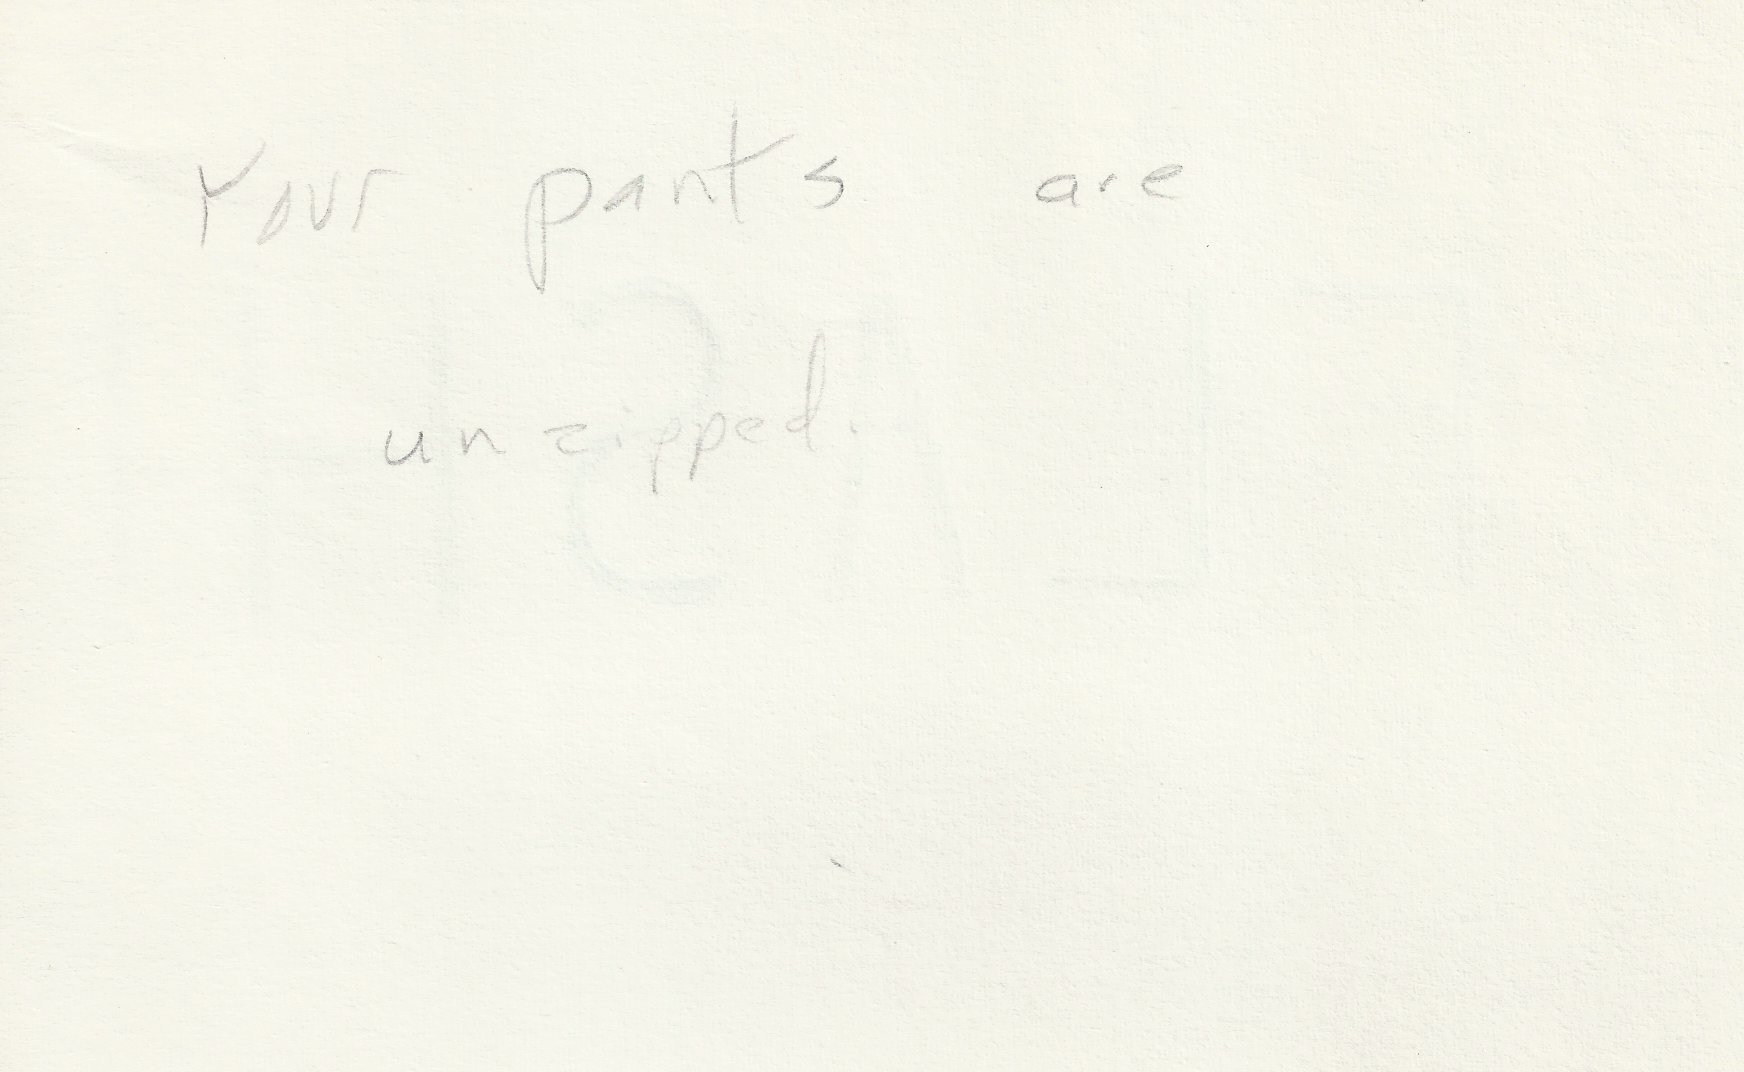 Your pants are
unzipped.